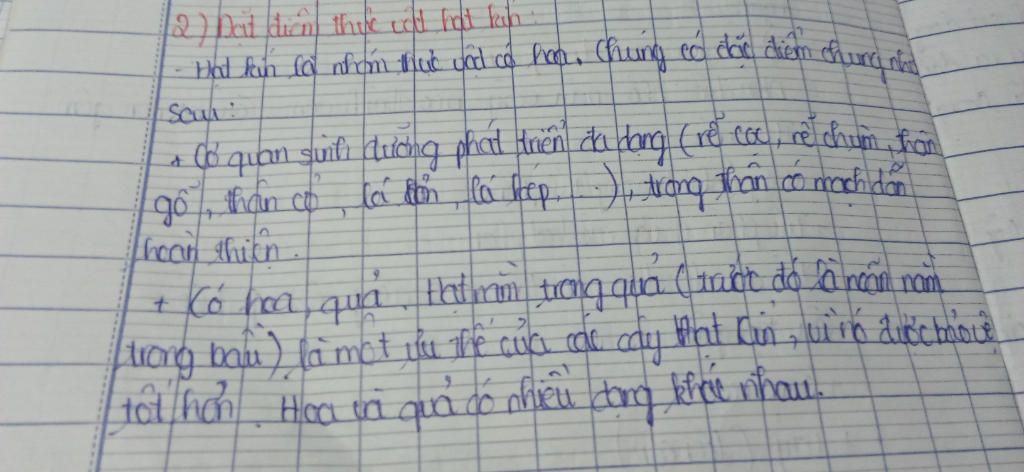 2) Đặt điểm thực vật hạt kín:
- Hạt kín là nhóm thực vật có hoa. Chúng có đặc điểm chung như
sau:
+ Cơ quan sinh dưỡng phát triển đa dạng (rễ cọc, rễ chùm, thân
gỗ, thân cỏ, lá đơn, lá kép,...), trong thân có mạch dẫn
hoàn thiện.
+ Có hoa, quả. Hạt nằm trong quả (trước đó là noãn nằm
trong bầu) là một ưu thế của các cây Hạt kín, vì nó được bảo vệ
tốt hơn. Hoa và quả có nhiều dạng khác nhau.